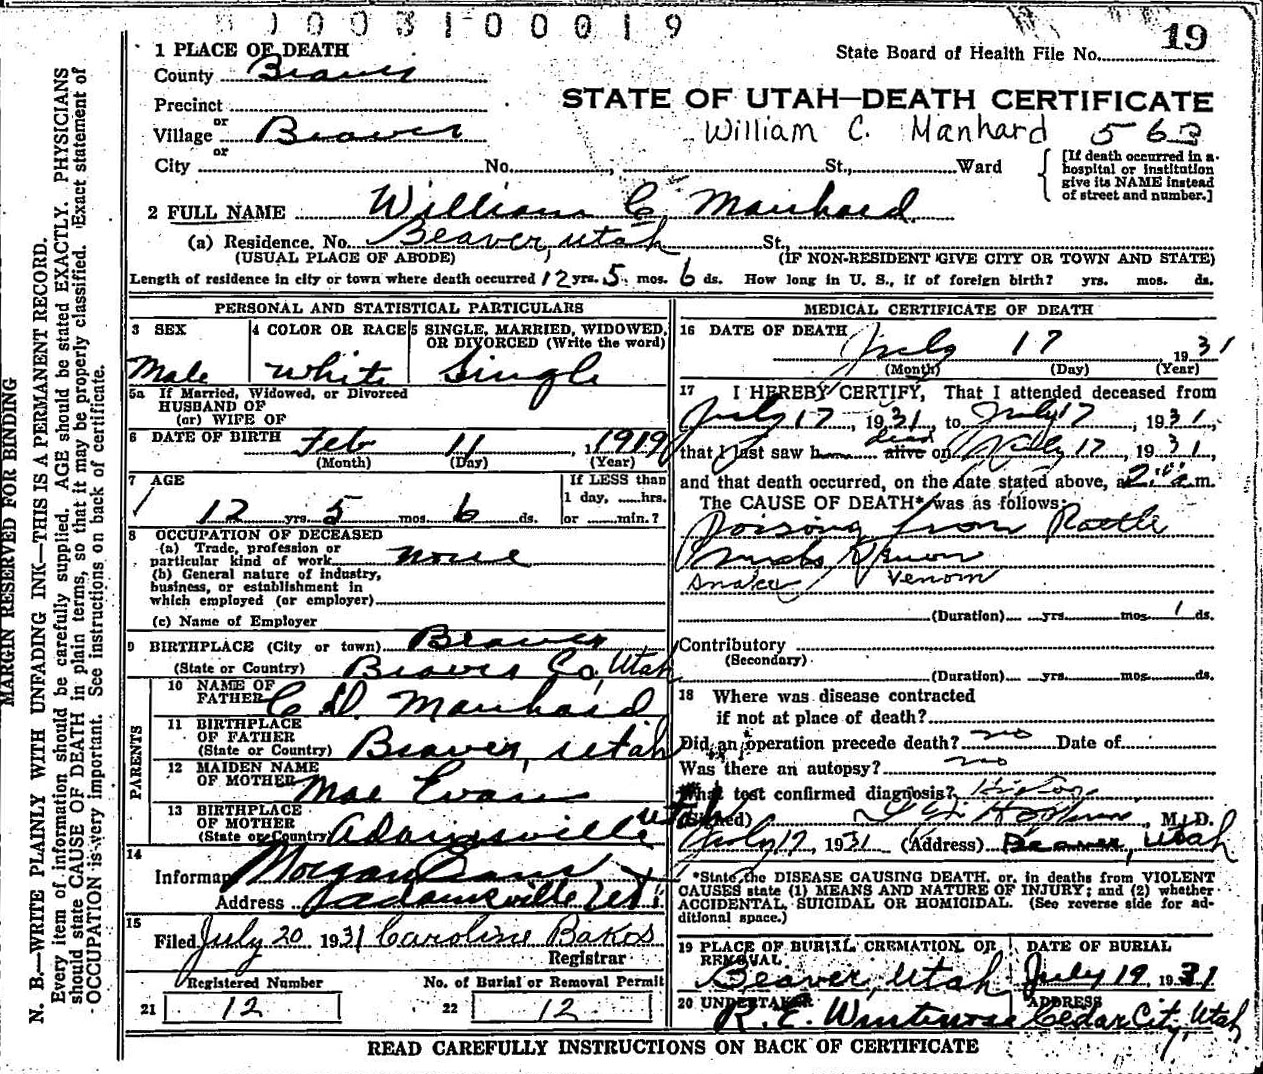 0 0 3 1 0 0 0 1 9
19
State Board of Health File No.
1 PLACE OF DEATH
County Beaver
STATE OF UTAH—DEATH CERTIFICATE
Precinct
or
Village Beaver
William C. Manhard 563
or
City No. , St., Ward
[If death occurred in a hospital or institution give its NAME instead of street and number.]
2 FULL NAME William C. Manhard
(a) Residence. No. Beaver, Utah St.,
(USUAL PLACE OF ABODE) (IF NON-RESIDENT GIVE CITY OR TOWN AND STATE)
Length of residence in city or town where death occurred 12 yrs. 5 mos. 6 ds. How long in U. S., if of foreign birth? yrs. mos. ds.
PERSONAL AND STATISTICAL PARTICULARS
3 SEX
Male
4 COLOR OR RACE
White
5 SINGLE, MARRIED, WIDOWED, OR DIVORCED (Write the word)
Single
5a If Married, Widowed, or Divorced
HUSBAND OF
(or) WIFE OF
6 DATE OF BIRTH Feb 11, 1919
(Month) (Day) (Year)
7 AGE
12 yrs. 5 mos. 6 ds.
If LESS than
1 day, hrs.
or min.?
8 OCCUPATION OF DECEASED
(a) Trade, profession or
particular kind of work None
(b) General nature of industry,
business, or establishment in
which employed (or employer)
(c) Name of Employer
9 BIRTHPLACE (City or town) Beaver
(State or Country) Beaver Co, Utah
PARENTS
10 NAME OF
FATHER C D. Manhard
11 BIRTHPLACE
OF FATHER
(State or Country) Beaver, Utah
12 MAIDEN NAME
OF MOTHER Mae Evans
13 BIRTHPLACE
OF MOTHER
(State or Country) Adamsville Utah
14
Informant Morgan Evans
Address Adamsville Ut
15
Filed July 20 1931 Caroline Bakos
Registrar
Registered Number
21 12
No. of Burial or Removal Permit
22 12
MEDICAL CERTIFICATE OF DEATH
16 DATE OF DEATH July 17 1931
(Month) (Day) (Year)
17 I HEREBY CERTIFY, That I attended deceased from
July 17, 1931, to July 17, 1931,
that I last saw h alive dead on July 17, 1931,
and that death occurred, on the date stated above, at 2 a.m.
The CAUSE OF DEATH* was as follows:
Poisong from Rattle
Snake Venom
Snake Venom
(Duration) yrs. mos. 1 ds.
Contributory
(Secondary)
(Duration) yrs. mos. ds.
18 Where was disease contracted
if not at place of death?
Did an operation precede death? no Date of
Was there an autopsy? no
What test confirmed diagnosis? History
(Signed) , M. D.
July 17, 1931 (Address) Beaver, Utah
*State the DISEASE CAUSING DEATH, or, in deaths from VIOLENT
CAUSES state (1) MEANS AND NATURE OF INJURY; and (2) whether
ACCIDENTAL, SUICIDAL OR HOMICIDAL. (See reverse side for ad-
ditional space.)
19 PLACE OF BURIAL, CREMATION, OR
REMOVAL
Beaver, Utah
DATE OF BURIAL
July 19, 1931
20 UNDERTAKER
R. E. Winterose
ADDRESS
Cedar City, Utah
READ CAREFULLY INSTRUCTIONS ON BACK OF CERTIFICATE
MARGIN RESERVED FOR BINDING
N. B.—WRITE PLAINLY WITH UNFADING INK—THIS IS A PERMANENT RECORD.
Every item of information should be carefully supplied. AGE should be stated EXACTLY. PHYSICIANS
should state CAUSE OF DEATH in plain terms, so that it may be properly classified. Exact statement of
OCCUPATION is very important. See instructions on back of certificate.